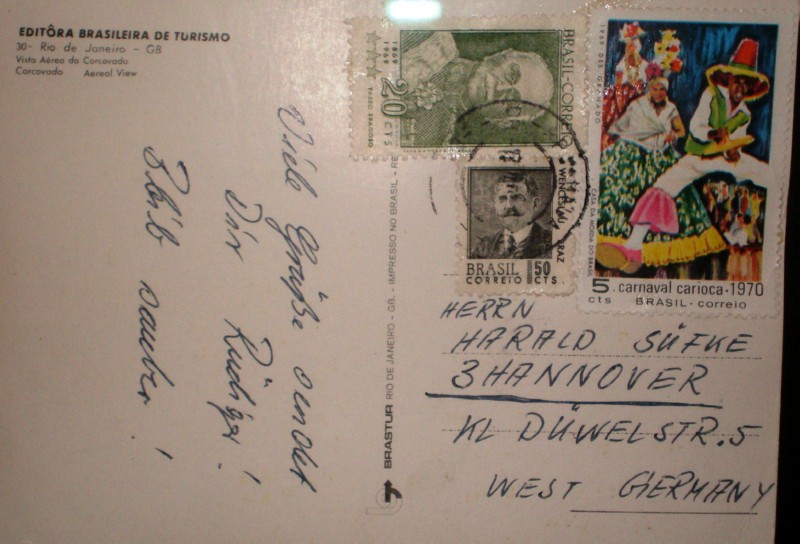 EDITÔRA BRASILEIRA DE TURISMO
30- Rio de Janeiro - GB
Vista Aérea do Corcovado
Corcovado Aereal View
Viele Grüße sendet
Dir Rüdiger!
Bleib sauber!
BRASTUR RIO DE JANEIRO - GB. - IMPRESSO NO BRASIL - RE
1869 1969
20 CTS
TASSO FRAGOSO
BRASIL-CORREIO
WENCESLAU BRAZ
BRASIL 50
CORREIO CTS.
CASA DA MOEDA DO BRASIL
5 carnaval carioca·1970
cts BRASIL-correio
HERRN
HARALD SÜFKE
3 HANNOVER
KL DÜWELSTR. 5
WEST GERMANY